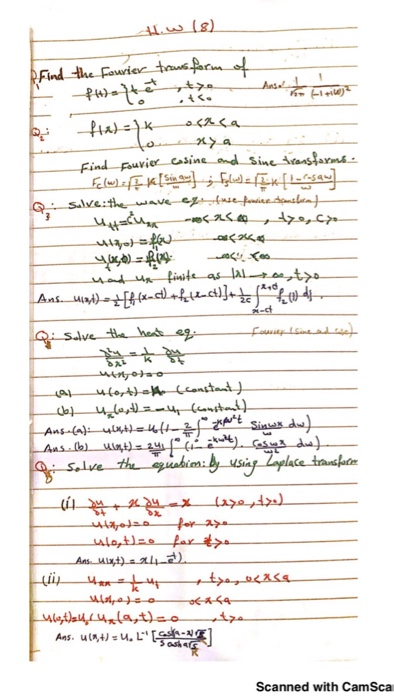 H.W (8)
Q1: Find the Fourier transform of
f(t) = { t e^-t , t>0
0 , t<0 Ans. 1/√2π 1/(-1+iω)²
Q2: f(x) = { k 0<x<a
0 x>a
Find Fourier cosine and Sine transforms.
Fc(ω) = √2/π k [sin aω/ω] ; Fs(ω) = √2/π k [1-cos aω/ω]
Q3: Solve: the wave eq. (use fourier transform)
u_tt = c² u_xx -∞<x<∞ , t>0, c>0
u(x,0) = f1(x) -∞<x<∞
u_t(x,0) = f2(x) -∞<x<∞
u and u_x finite as |x| → ∞, t>0
Ans. u(x,t) = 1/2 [f1(x-ct) + f2(x-ct)] + 1/2c ∫_{x-ct}^{x+ct} f2(s) ds.
Q4: Solve the heat eq. Fourier (sine and cosine)
∂²u/∂x² = 1/k ∂u/∂t
u(x,0) = 0
(a) u(0,t) = u0 (constant)
(b) u_x(0,t) = -u1 (constant)
Ans.(a): u(x,t) = u0(1 - 2/π ∫_0^∞ e^{-kω²t} sin ωx/ω dω)
Ans.(b) u(x,t) = 2u1/π ∫_0^∞ (1-e^{-kω²t}) . cos ωx/ω² dω)
Q5: Solve the equation: By using Laplace transform
(i) ∂u/∂t + x ∂u/∂x = x (x>0, t>0)
u(x,0) = 0 for x>0
u(0,t) = 0 for t>0
Ans. u(x,t) = x(1-e^-t).
(ii) u_xx = 1/k u_t , t>0, 0<x<a
u(x,0) = 0 0<x<a
u(0,t) = u0, u_x(a,t) = 0 , t>0
Ans. u(x,t) = u0 L^-1 [cosh(a-x)√s/k / s cosh a√s/k]
Scanned with CamSca